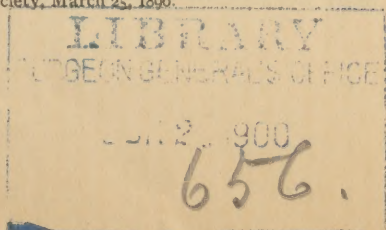 ciety, March 25, 1890.
LIBRARY
SURGEON GENERAL'S OFFICE
JUN 2 1900
656.